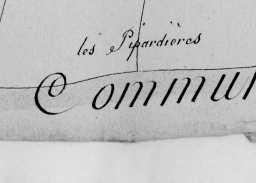 les Pipardières
Commun